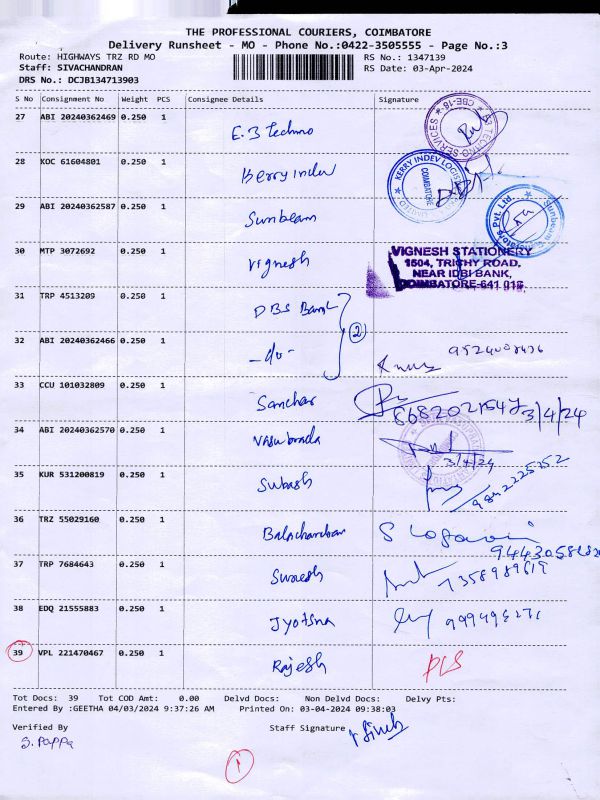 THE PROFESSIONAL COURIERS, COIMBATORE
Delivery Runsheet - MO - Phone No.:0422-3505555 - Page No.:3
Route: HIGHWAYS TRZ RD MO
RS No.: 1347139
Staff: SIVACHANDRAN
RS Date: 03-Apr-2024
DRS No.: DCJB134713903
S No Consignment No Weight PCS Consignee Details Signature
27 ABI 20240362469 0.250 1 E.3 Techno
3 TECHNO SERVICES CBE-18
28 KOC 61604801 0.250 1 Kerry indev
KERRY INDEV LOGIS LIMITED COIMBATORE
29 ABI 20240362587 0.250 1 Sunbeam
Sunbeam Pvt. Ltd.
30 MTP 3072692 0.250 1 Vignesh
VIGNESH STATIONERY
1504, TRICHY ROAD,
NEAR IDBI BANK,
COIMBATORE-641 018.
31 TRP 4513209 0.250 1 DBS Bank
2
32 ABI 20240362466 0.250 1 -do-
33 CCU 101032809 0.250 1 Sanchar
3/4/24
34 ABI 20240362570 0.250 1 Vasubrada
3/4/24
35 KUR 531200819 0.250 1 Subash
9842225252
36 TRZ 55029160 0.250 1 Balachandran
S Logavani
37 TRP 7684643 0.250 1 Suresh
7358989619
38 EDQ 21555883 0.250 1 Jyotsna
39 VPL 221470467 0.250 1 Rajesh
DLS
Tot Docs: 39 Tot COD Amt: 0.00 Delvd Docs: Non Delvd Docs: Delvy Pts:
Entered By :GEETHA 04/03/2024 9:37:26 AM Printed On: 03-04-2024 09:38:03
Verified By
Staff Signature
S. Pappa
1